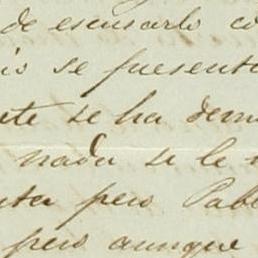 de escusarlo co
se presente
te se ha dem
nada se le
pero Pab
pero aunque